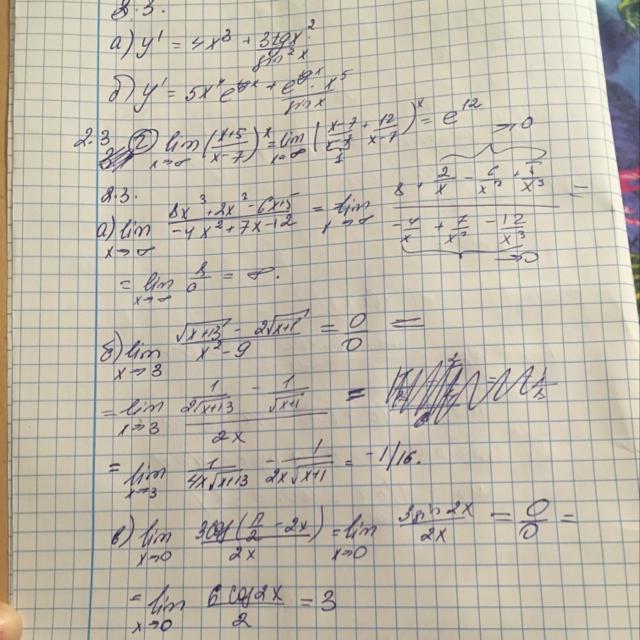 2.3.
а) y' = 4x³ + 3tgx² / sin²x
б) y' = 5x⁴e^tgx + e^tgx / sin x · x⁵
2.3 г) lim x→∞ (x+5 / x-7)^x = lim x→∞ (x-7 / x-7 + 12 / x-7)^x = e^12
1
2.3. →0
а) lim x→∞ 8x³+2x²-6x+5 / -4x²+7x-12 = lim x→∞ 8 + 2/x - 6/x² + 5/x³ / -4/x + 7/x² - 12/x³ =
→0
= lim x→∞ 8/0 = ∞.
б) lim x→3 √x+13 - 2√x+1 / x²-9 = 0/0 =
= lim x→3 1/2√x+13 - 1/√x+1 / 2x =
= lim x→3 1/4x√x+13 - 1/2x√x+1 = -1/16.
в) lim x→0 3cos(π/2 - 2x) / 2x = lim x→0 3sin2x / 2x = 0/0 =
= lim x→0 6cos2x / 2 = 3